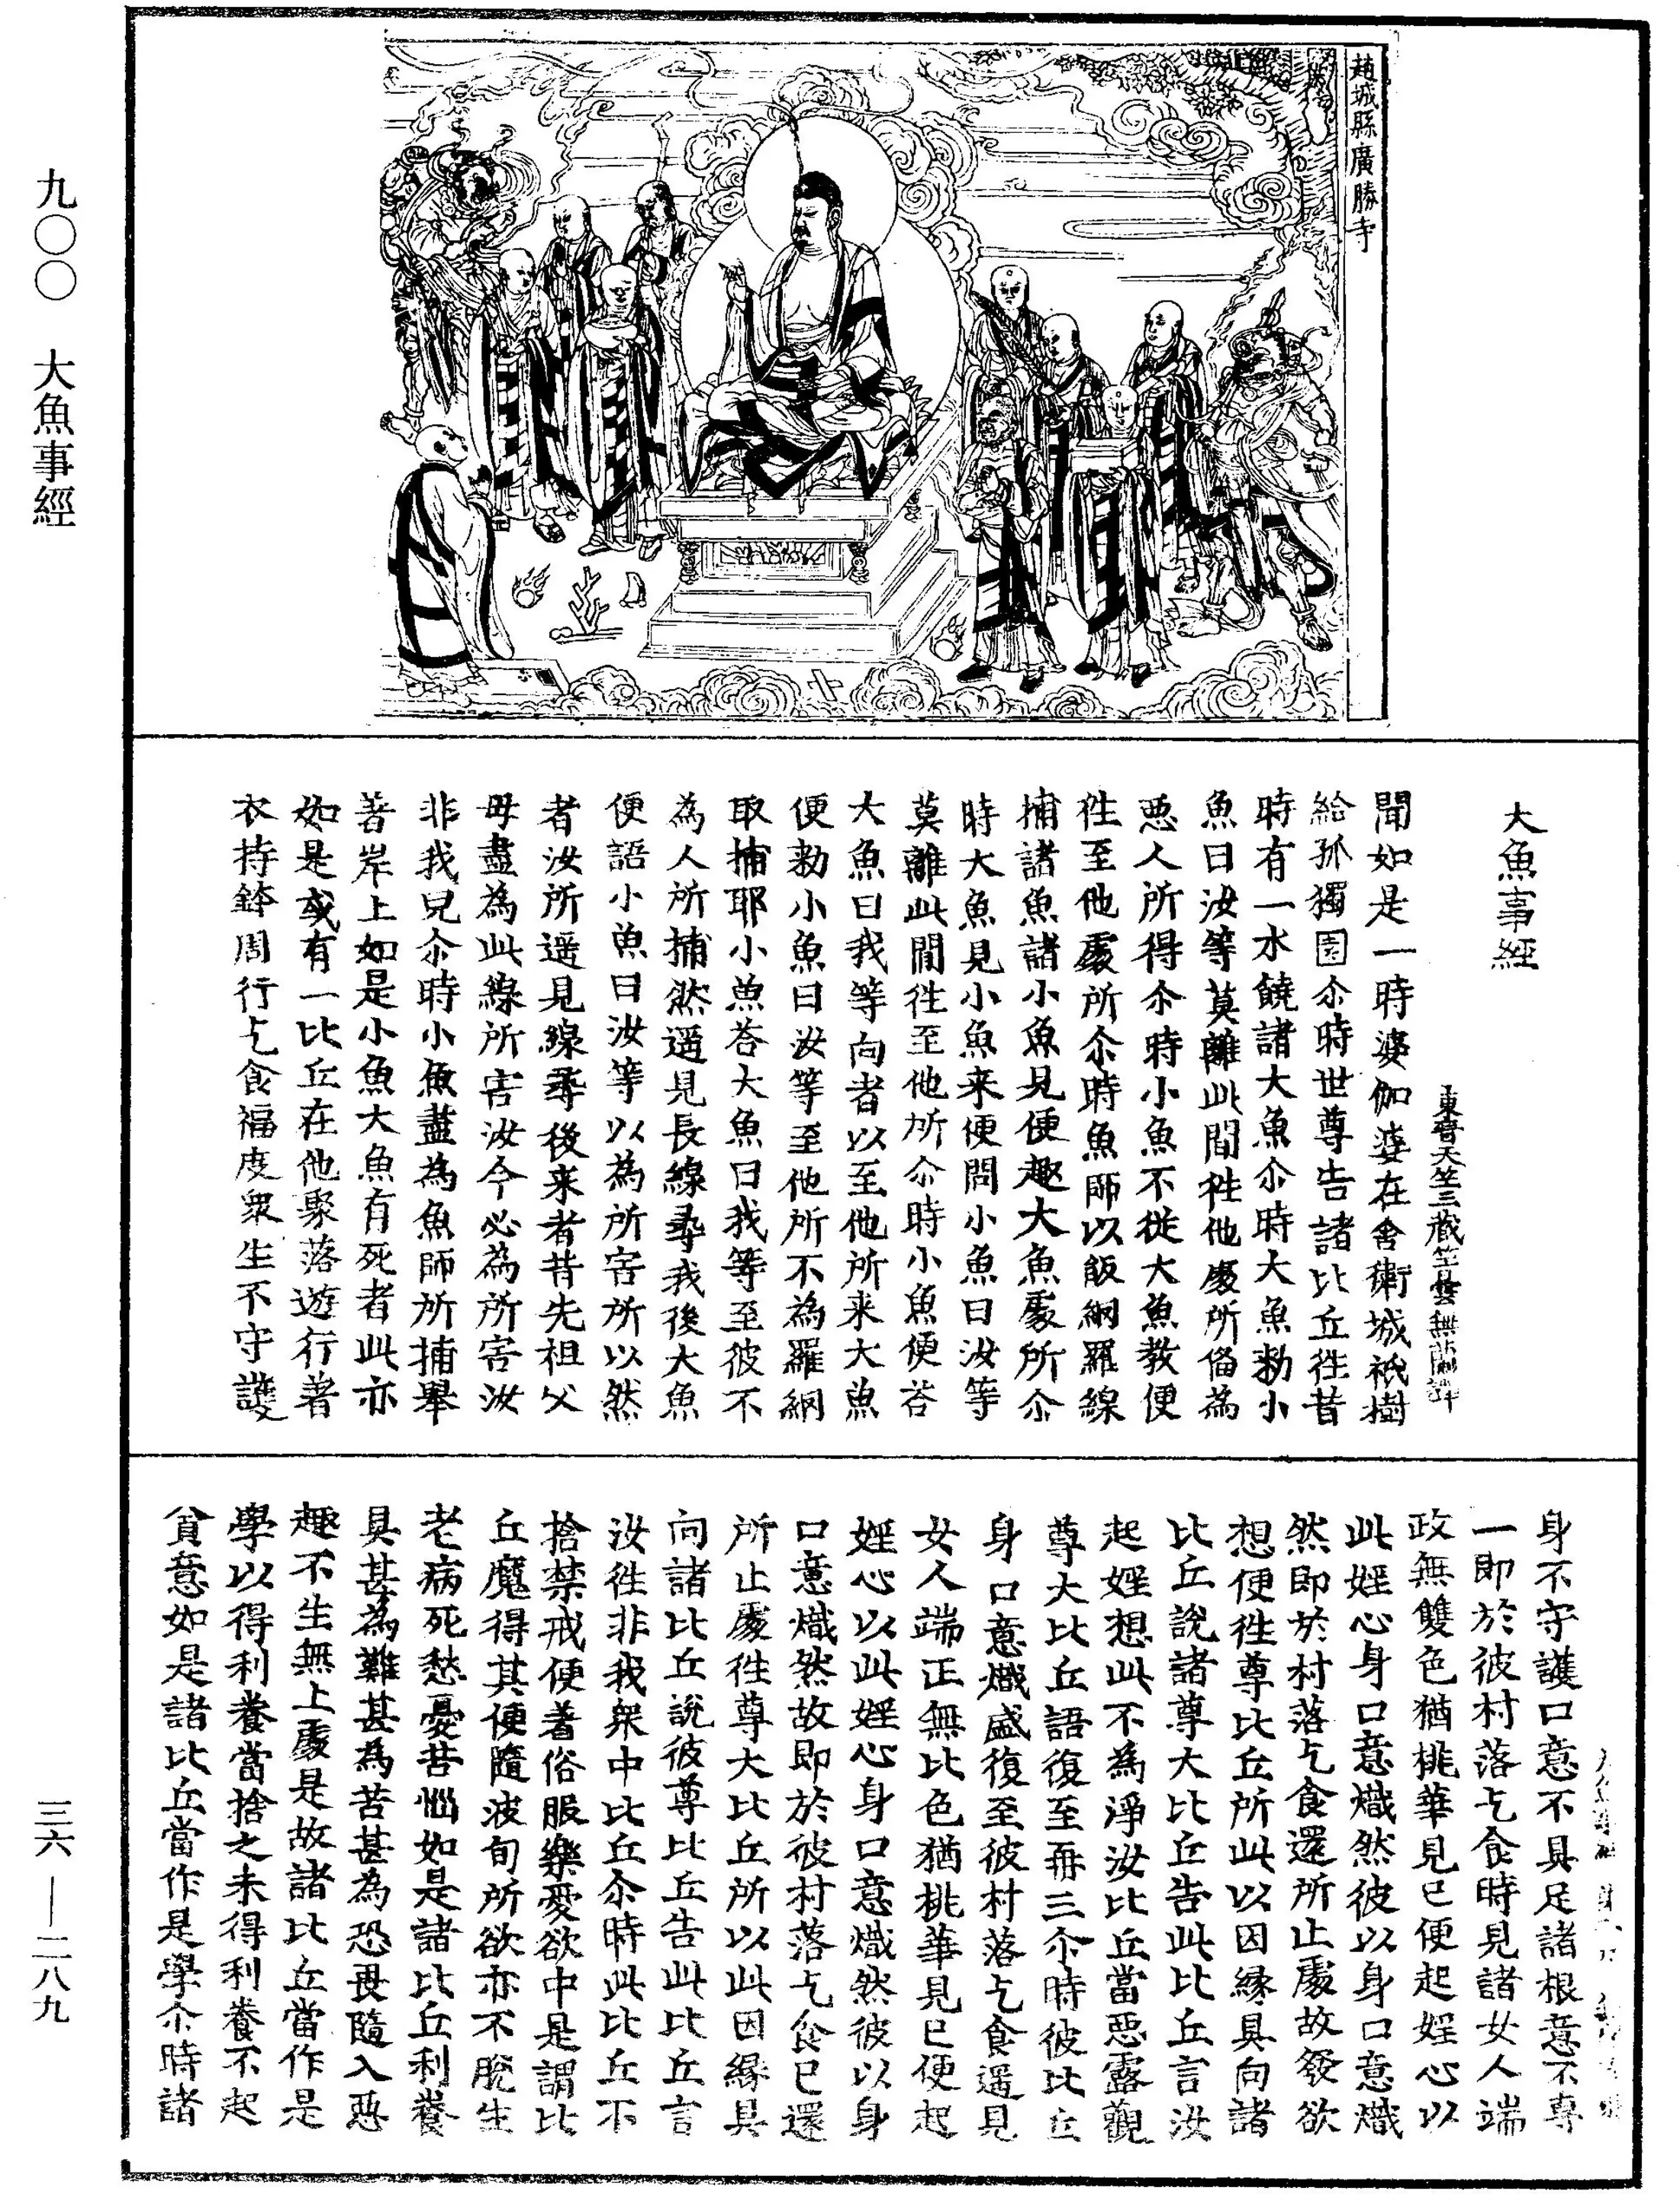 趙城縣廣勝寺
九〇〇　大魚事經
大魚事經
東晉天竺三藏竺曇無蘭譯
聞如是一時婆伽婆在舍衛城祇樹
給孤獨園尒時世尊告諸比丘往昔
時有一水饒諸大魚尒時大魚勑小
魚曰汝等莫離此間往他處所俻為
惡人所得尒時小魚不從大魚教便
往至他處所尒時魚師以飯網羅線
捕諸魚諸小魚見便趣大魚處所尒
時大魚見小魚来便問小魚曰汝等
莫離此間往至他所尒時小魚便荅
大魚曰我等向者以至他所来大魚
便勑小魚曰汝等至他所不為羅網
取捕耶小魚荅大魚曰我等至彼不
為人所捕然遥見長線尋我後大魚
便語小魚曰汝等以為所害所以然
者汝所遥見線尋後来者昔先祖父
母盡為此線所害汝今必為所害汝
非我兒尒時小魚盡為魚師所捕舉
著岸上如是小魚大魚有死者此亦
如是或有一比丘在他聚落遊行著
衣持鉢周行乞食福度衆生不守護
身不守護口意不具足諸根意不專
一即於彼村落乞食時見諸女人端
政無雙色猶桃華見已便起婬心以
此婬心身口意熾然彼以身口意熾
然即於村落乞食還所止處故發欲
想便往尊比丘所此以因緣具向諸
比丘說諸尊大比丘告此比丘言汝
起婬想此不為淨汝比丘當惡露觀
尊大比丘語復至再三尒時彼比丘
身口意熾盛復至彼村落乞食遥見
女人端正無比色猶桃華見已便起
婬心以此婬心身口意熾然彼以身
口意熾然故即於彼村落乞食已還
所止處往尊大比丘所以此因緣具
向諸比丘說彼尊比丘告此比丘言
汝往非我衆中比丘尒時此比丘不
捨禁戒便著俗服樂愛欲中是謂比
丘魔得其便隨波旬所欲亦不脫生
老病死愁憂苦惱如是諸比丘利養
具甚為難甚為苦甚為恐畏隨入惡
趣不生無上處是故諸比丘當作是
學以得利養當捨之未得利養不起
貪意如是諸比丘當作是學尒時諸
三六——二八九